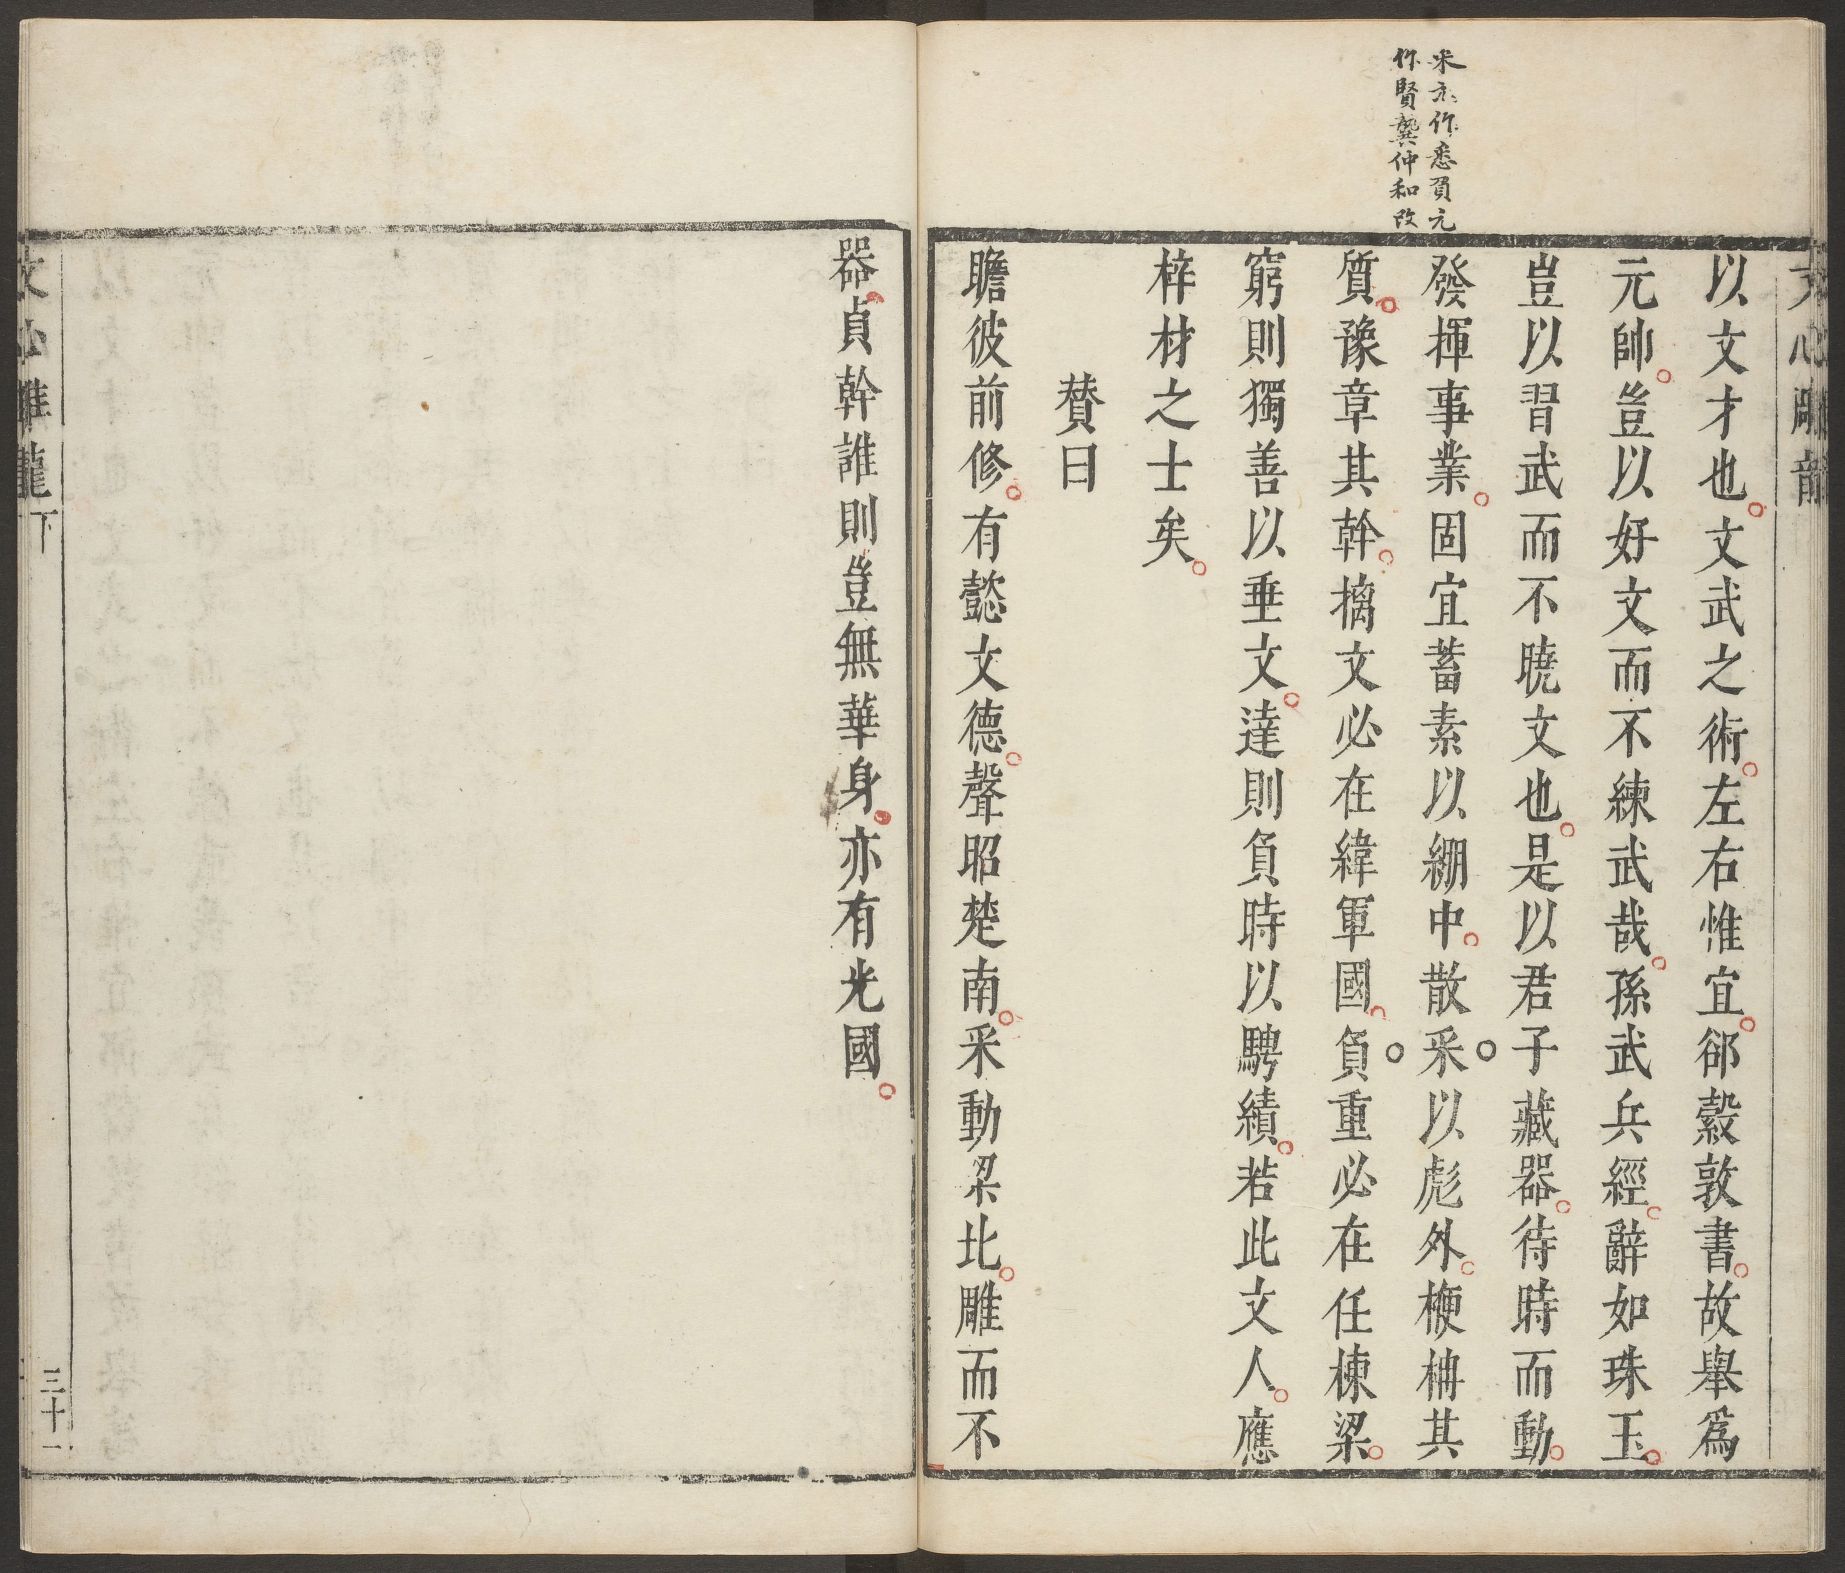 采元作悉負元
作賢龔仲和改
文心雕龍
以文才也文武之術左右惟宜郤縠敦書故舉爲
元帥豈以好文而不練武哉孫武兵經辭如珠玉
豈以習武而不曉文也是以君子藏器待時而動
發揮事業固宜蓄素以綳中散采以彪外楩柟其
質豫章其幹摛文必在緯軍國負重必在任棟梁
窮則獨善以垂文達則負時以騁績若此文人應
梓材之士矣
贊曰
瞻彼前修有懿文德聲昭楚南采動梁北雕而不
器貞幹誰則豈無華身亦有光國
文心雕龍下
三十一